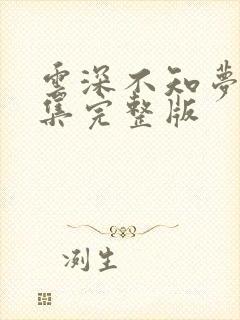 雲深不知夢
集完整版
冽生